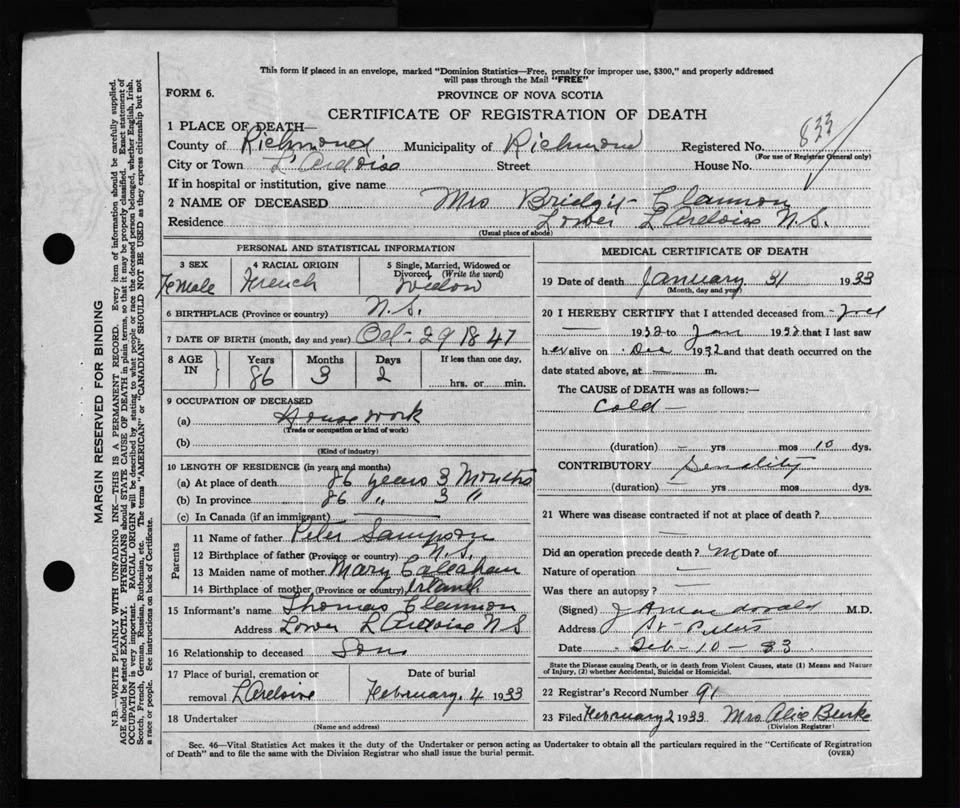 This form if placed in an envelope, marked "Dominion Statistics—Free, penalty for improper use, $300," and properly addressed
will pass through the Mail "FREE"
FORM 6.
PROVINCE OF NOVA SCOTIA
CERTIFICATE OF REGISTRATION OF DEATH
833
1 PLACE OF DEATH—
County of Richmond Municipality of Richmond Registered No.
(For use of Registrar General only)
City or Town L'Ardoise Street House No.
If in hospital or institution, give name
2 NAME OF DECEASED Mrs Bridgit Clannon
Residence Lower L'Ardoise N.S.
(Usual place of abode)
PERSONAL AND STATISTICAL INFORMATION
3 SEX Female
4 RACIAL ORIGIN French
5 Single, Married, Widowed or
Divorced (Write the word)
Widow
6 BIRTHPLACE (Province or country) N.S.
7 DATE OF BIRTH (month, day and year) Oct- 29 1847
8 AGE IN
Years Months Days If less than one day,
86 3 2 hrs. or min.
9 OCCUPATION OF DECEASED
(a) House work
(Trade or occupation or kind of work)
(b)
(Kind of industry)
10 LENGTH OF RESIDENCE (in years and months)
(a) At place of death 86 years 3 Months
(b) In province 86 " 3 "
(c) In Canada (if an immigrant)
Parents
11 Name of father Peter Sampson
12 Birthplace of father (Province or country) N.S.
13 Maiden name of mother Mary Callahan
14 Birthplace of mother (Province or country) Irland
15 Informant's name Thomas Clannon
Address Lower L'Ardoise N S
16 Relationship to deceased Son
17 Place of burial, cremation or Date of burial
removal L'Ardoise February. 4 1933
18 Undertaker
(Name and address)
MEDICAL CERTIFICATE OF DEATH
19 Date of death January 31 1933
(Month, day and year)
20 I HEREBY CERTIFY that I attended deceased from
1932 to Jan 1932 that I last saw
h er alive on Dec 1932 and that death occurred on the
date stated above, at — m.
The CAUSE of DEATH was as follows:—
Cold —
(duration) — yrs mos 10 dys.
CONTRIBUTORY Senility
(duration) — yrs mos dys.
21 Where was disease contracted if not at place of death?
—
Did an operation precede death? Date of
Nature of operation —
Was there an autopsy? —
(Signed) J A Macdonald M.D.
Address St- Peters
Date Feb- 10- 33
State the Disease causing Death, or in death from Violent Causes, state (1) Means and Nature
of Injury, (2) whether Accidental, Suicidal or Homicidal.
22 Registrar's Record Number 91
23 Filed February 2 1933 Mrs Alex Burke
(Division Registrar)
Sec. 46—Vital Statistics Act makes it the duty of the Undertaker or person acting as Undertaker to obtain all the particulars required in the "Certificate of Registration
of Death" and to file the same with the Division Registrar who shall issue the burial permit. (OVER)
MARGIN RESERVED FOR BINDING
N.B.—WRITE PLAINLY WITH UNFADING INK—THIS IS A PERMANENT RECORD. Every item of information should be carefully supplied.
AGE should be stated EXACTLY. PHYSICIANS should STATE CAUSE OF DEATH in plain terms, so that it may be properly classified. Exact statement of
OCCUPATION is very important. RACIAL ORIGIN will be described by stating to what people or race the deceased person belonged, whether English, Irish,
Scotch, French, German, Russian, Ruthenian, etc. The terms "AMERICAN" or "CANADIAN" SHOULD NOT BE USED as they express citizenship but not
a race or people. See instructions on back of Certificate.